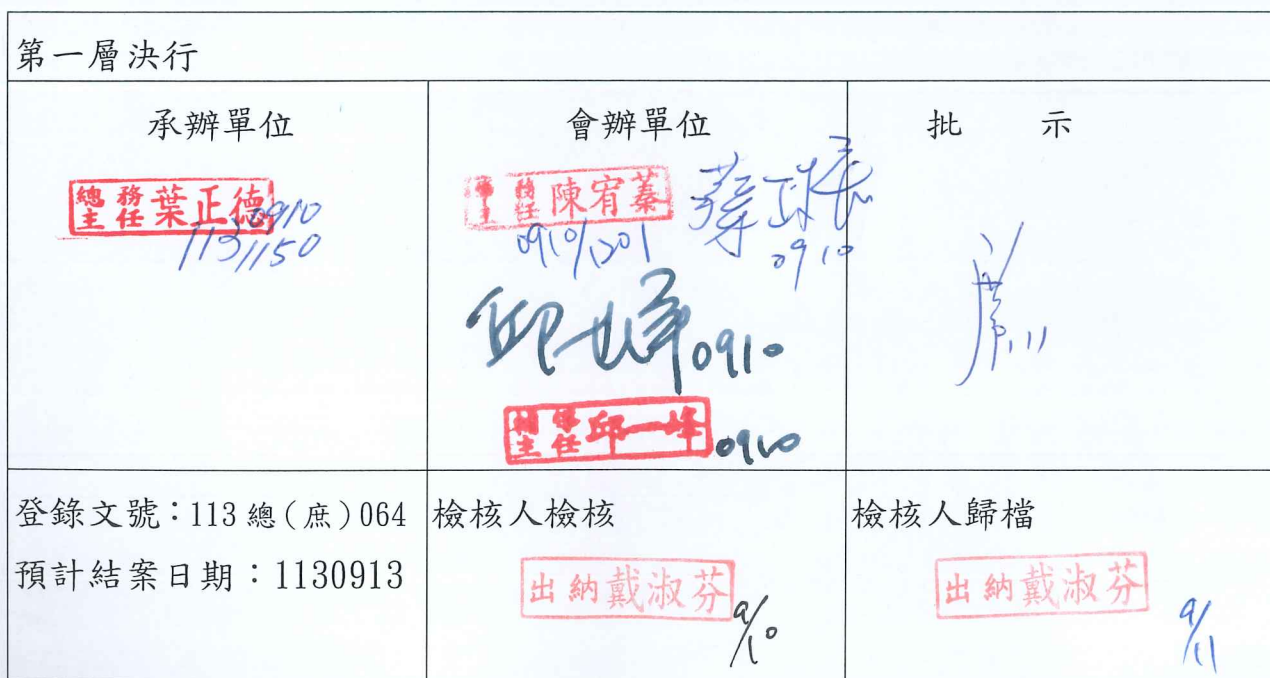 第一層決行
承辦單位
總務主任 葉正德
0910
113/1150
會辦單位
陳宥蓁
0910/1201
0910
0910
輔導主任 邱一峰
0910
批 示
登錄文號：113 總(庶)064
預計結案日期：1130913
檢核人檢核
出納戴淑芬
9/10
檢核人歸檔
出納戴淑芬
9/11